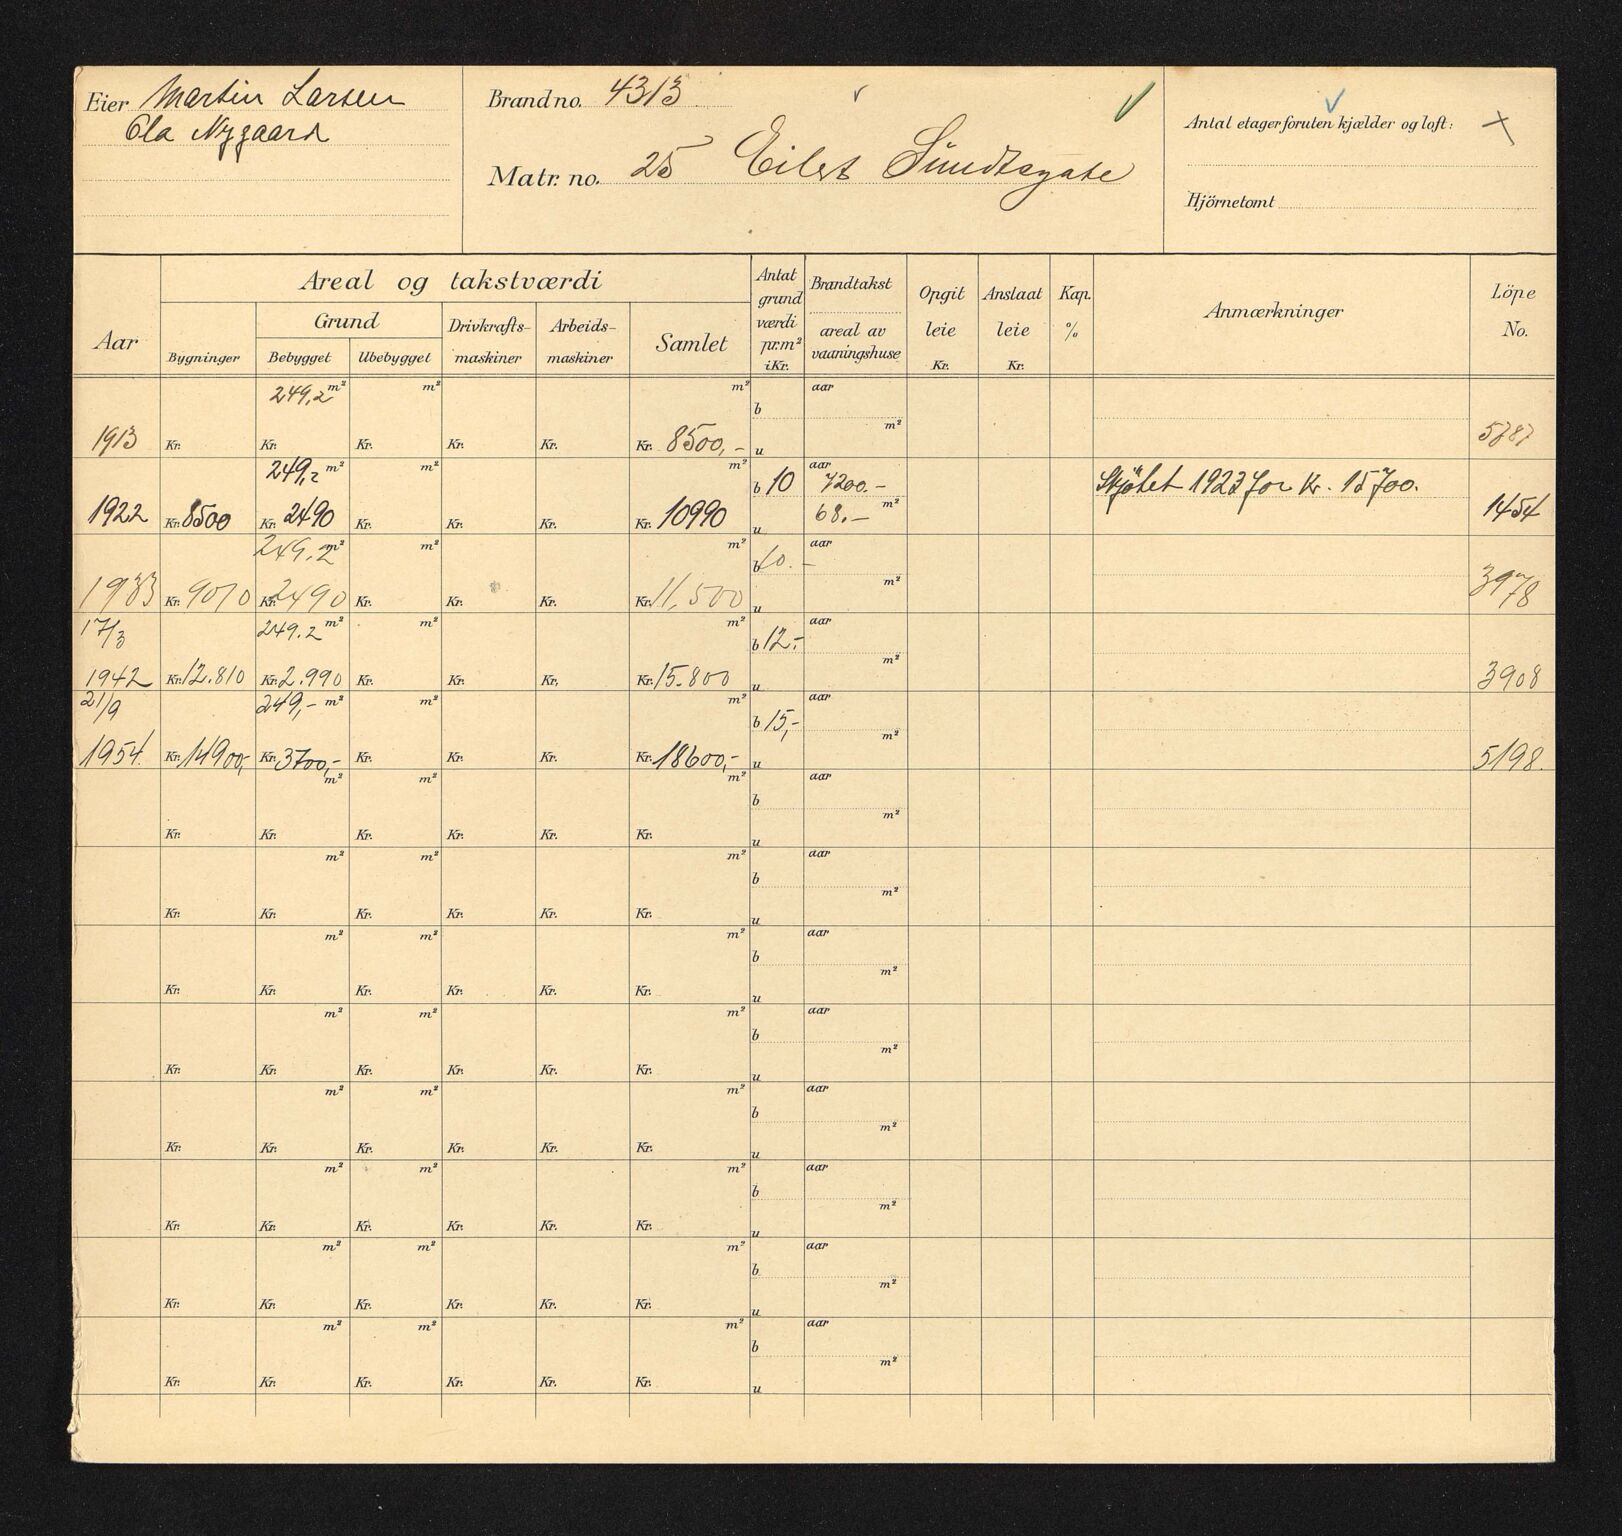 Eier Martin Larsen
Ola Nygaard
Brand no. 4313
Matr. no. 25 Eilert Sundtsgate
Antal etager foruten kjælder og loft:
Hjörnetomt
Aar
Areal og takstværdi
Bygninger
Grund
Bebygget
Ubebygget
Drivkrafts-
maskiner
Arbeids-
maskiner
Samlet
Antat
grund
værdi
pr.m²
i Kr.
Brandtakst
areal av
vaaningshuse
Opgit
leie
Kr.
Anslaat
leie
Kr.
Kap.
%
Anmærkninger
Löpe
No.
249,2 m² m² m² aar
b
m²
1913 Kr. Kr. Kr. Kr. Kr. Kr. 8500,- u 5787
249,2 m² m² m² aar
b 10 7200.- Skjøtet 1923 for Kr. 15700.
68.- m²
1922 Kr. 8500 Kr. 2490 Kr. Kr. Kr. Kr. 10990 u 1454
249.2 m² m² m² aar
b 10.-
m²
1933 Kr. 9010 Kr. 2490 Kr. Kr. Kr. Kr. 11,500 u 3978
17/3 249.2 m² m² m² aar
b 12.-
m²
1942 Kr. 12.810 Kr. 2.990 Kr. Kr. Kr. Kr. 15.800 u 3908
21/9 249,- m² m² m² aar
b 15,-
m²
1954. Kr. 14900,- Kr. 3700,- Kr. Kr. Kr. Kr. 18600,- u 5198.
m² m² m² aar
b
m²
Kr. Kr. Kr. Kr. Kr. Kr. u
m² m² m² aar
b
m²
Kr. Kr. Kr. Kr. Kr. Kr. u
m² m² m² aar
b
m²
Kr. Kr. Kr. Kr. Kr. Kr. u
m² m² m² aar
b
m²
Kr. Kr. Kr. Kr. Kr. Kr. u
m² m² m² aar
b
m²
Kr. Kr. Kr. Kr. Kr. Kr. u
m² m² m² aar
b
m²
Kr. Kr. Kr. Kr. Kr. Kr. u
m² m² m² aar
b
m²
Kr. Kr. Kr. Kr. Kr. Kr. u
m² m² m² aar
b
m²
Kr. Kr. Kr. Kr. Kr. Kr. u